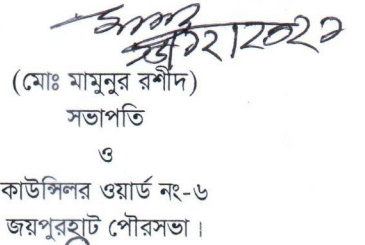 (মোঃ মামুনুর রশীদ)
সভাপতি
ও
কাউন্সিলর ওয়ার্ড নং-৬
জয়পুরহাট পৌরসভা।